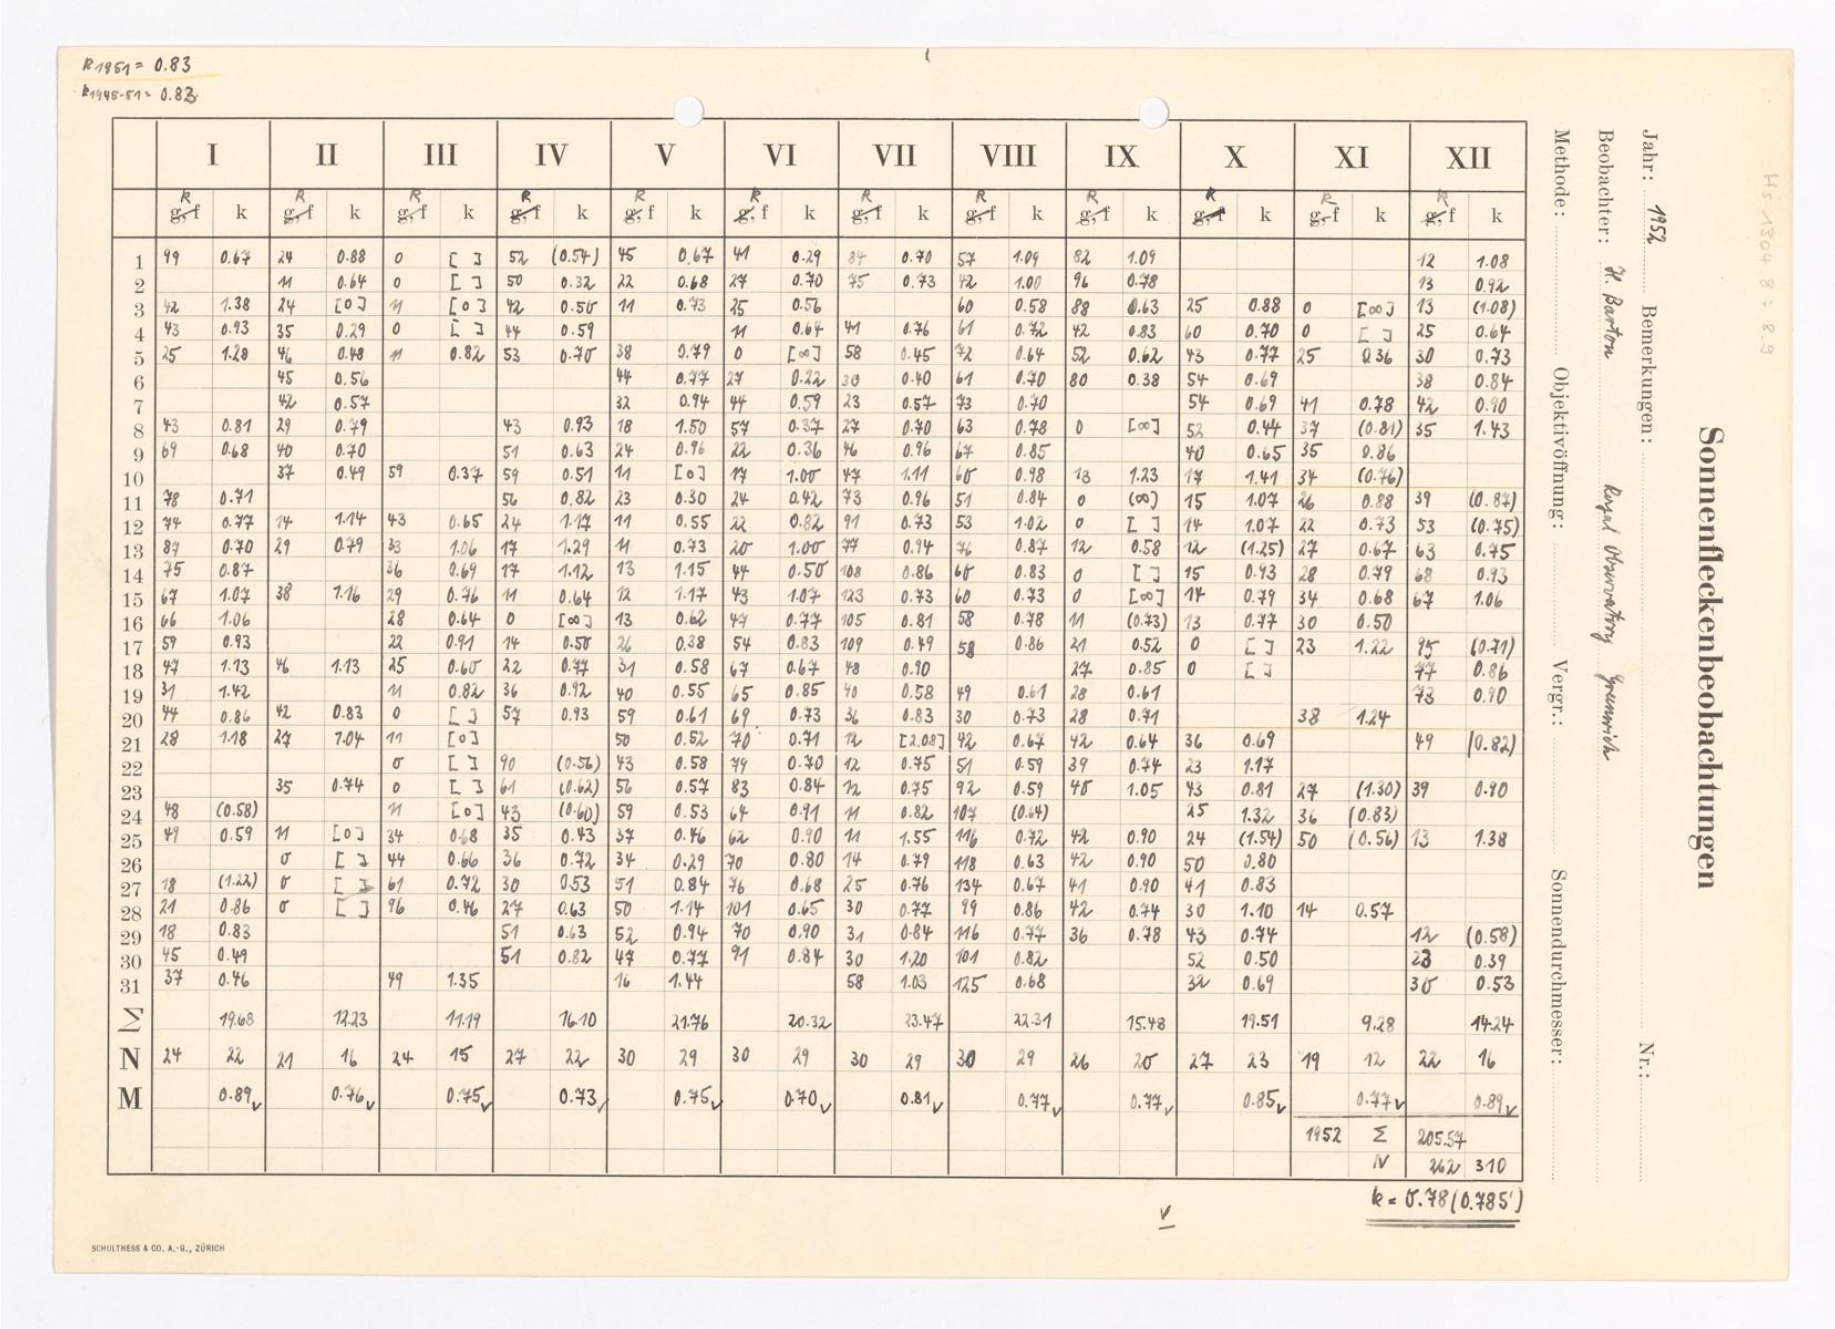 R1951 = 0.83
k1945-51 = 0.83
I II III IV V VI VII VIII IX X XI XII
R R R R R R R R R R R R
g, f k g, f k g, f k g, f k g, f k g, f k g, f k g, f k g, f k g, f k g, f k g, f k
1 99 0.67 24 0.88 0 [ ] 52 (0.54) 45 0.67 41 0.29 84 0.70 57 1.09 82 1.09 12 1.08
2 11 0.64 0 [ ] 50 0.32 22 0.68 27 0.70 75 0.73 42 1.00 96 0.78 13 0.92
3 42 1.38 24 [0] 11 [0] 42 0.50 11 0.73 25 0.56 60 0.58 88 0.63 25 0.88 0 [∞] 13 (1.08)
4 43 0.93 35 0.29 0 [ ] 44 0.59 11 0.64 41 0.76 61 0.72 42 0.83 60 0.70 0 [ ] 25 0.64
5 25 1.28 46 0.48 11 0.82 53 0.70 38 0.79 0 [∞] 58 0.45 72 0.64 52 0.62 43 0.77 25 0.36 30 0.73
6 45 0.56 44 0.77 27 0.22 30 0.40 61 0.70 80 0.38 54 0.69 38 0.84
7 42 0.57 32 0.94 44 0.59 23 0.57 73 0.70 54 0.69 41 0.78 42 0.90
8 43 0.81 29 0.79 43 0.93 18 1.50 57 0.37 27 0.70 63 0.78 0 [∞] 52 0.44 37 (0.81) 35 1.43
9 69 0.68 40 0.70 51 0.63 24 0.96 22 0.36 46 0.96 67 0.85 40 0.65 35 0.86
10 37 0.49 59 0.37 59 0.51 11 [0] 17 1.00 47 1.11 60 0.98 13 1.23 17 1.41 34 (0.76)
11 78 0.71 56 0.82 23 0.30 24 0.42 73 0.96 51 0.84 0 (∞) 15 1.07 26 0.88 39 (0.87)
12 74 0.77 14 1.14 43 0.65 24 1.17 11 0.55 22 0.82 91 0.73 53 1.02 0 [ ] 14 1.07 22 0.73 53 (0.75)
13 87 0.70 29 0.79 33 1.06 17 1.29 11 0.73 20 1.00 77 0.94 76 0.87 12 0.58 12 (1.25) 27 0.67 63 0.75
14 75 0.87 36 0.69 17 1.12 13 1.15 44 0.50 108 0.86 60 0.83 0 [ ] 15 0.93 28 0.79 68 0.93
15 67 1.07 38 1.16 29 0.76 11 0.64 12 1.17 43 1.07 123 0.73 60 0.73 0 [∞] 14 0.79 34 0.68 67 1.06
16 66 1.06 28 0.64 0 [∞] 13 0.62 47 0.77 105 0.81 58 0.78 11 (0.73) 13 0.77 30 0.50
17 59 0.93 22 0.91 14 0.50 26 0.38 54 0.83 109 0.49 58 0.86 21 0.52 0 [ ] 23 1.22 95 (0.71)
18 47 1.13 46 1.13 25 0.60 22 0.77 31 0.58 67 0.67 48 0.90 27 0.85 0 [ ] 77 0.86
19 31 1.42 11 0.82 36 0.92 40 0.55 65 0.85 40 0.58 49 0.61 28 0.61 73 0.90
20 44 0.86 42 0.83 0 [ ] 57 0.93 59 0.61 69 0.73 36 0.83 30 0.73 28 0.71 38 1.24
21 28 1.18 27 1.04 11 [0] 50 0.52 70 0.71 12 [2.08] 42 0.67 42 0.64 36 0.69 49 (0.82)
22 0 [ ] 90 (0.56) 43 0.58 79 0.70 12 0.75 51 0.59 39 0.74 23 1.17
23 35 0.74 0 [ ] 61 (0.62) 56 0.57 83 0.84 12 0.75 92 0.59 40 1.05 43 0.81 27 (1.30) 39 0.90
24 48 (0.58) 11 [0] 43 (0.60) 59 0.53 64 0.91 11 0.82 107 (0.64) 25 1.32 36 (0.83)
25 49 0.59 11 [0] 34 0.68 35 0.43 37 0.46 62 0.90 11 1.55 116 0.72 42 0.90 24 (1.54) 50 (0.56) 13 1.38
26 0 [ ] 44 0.66 36 0.72 34 0.29 70 0.80 14 0.79 118 0.63 42 0.90 50 0.80
27 18 (1.22) 0 [ ] 61 0.72 30 0.53 51 0.84 76 0.68 25 0.76 134 0.67 41 0.90 41 0.83
28 21 0.86 0 [ ] 96 0.46 27 0.63 50 1.14 101 0.65 30 0.77 99 0.86 42 0.74 30 1.10 14 0.57
29 18 0.83 51 0.63 52 0.94 70 0.90 31 0.84 116 0.77 36 0.78 43 0.74 12 (0.58)
30 45 0.49 51 0.82 47 0.77 91 0.84 30 1.20 101 0.82 52 0.50 23 0.39
31 37 0.46 49 1.35 16 1.44 58 1.03 125 0.68 32 0.69 30 0.53
Σ 19.68 12.23 11.19 16.10 21.76 20.32 23.47 22.31 15.48 19.51 9.28 14.24
N 24 22 21 16 24 15 27 22 30 29 30 29 30 29 30 29 26 20 27 23 19 12 22 16
M 0.89 0.76 0.75 0.73 0.75 0.70 0.81 0.77 0.77 0.85 0.77 0.89
1952 Σ 205.57
N 262 310
k = 0.78 (0.785)
SCHULTHESS & CO. A.-G., ZÜRICH
Sonnenfleckenbeobachtungen
Jahr: 1952 Bemerkungen: Nr.:
Beobachter: H. Barton Royal Observatory Greenwich
Methode: Objektivöffnung: Vergr.: Sonnendurchmesser:
Hs 1304.8 : 8.9